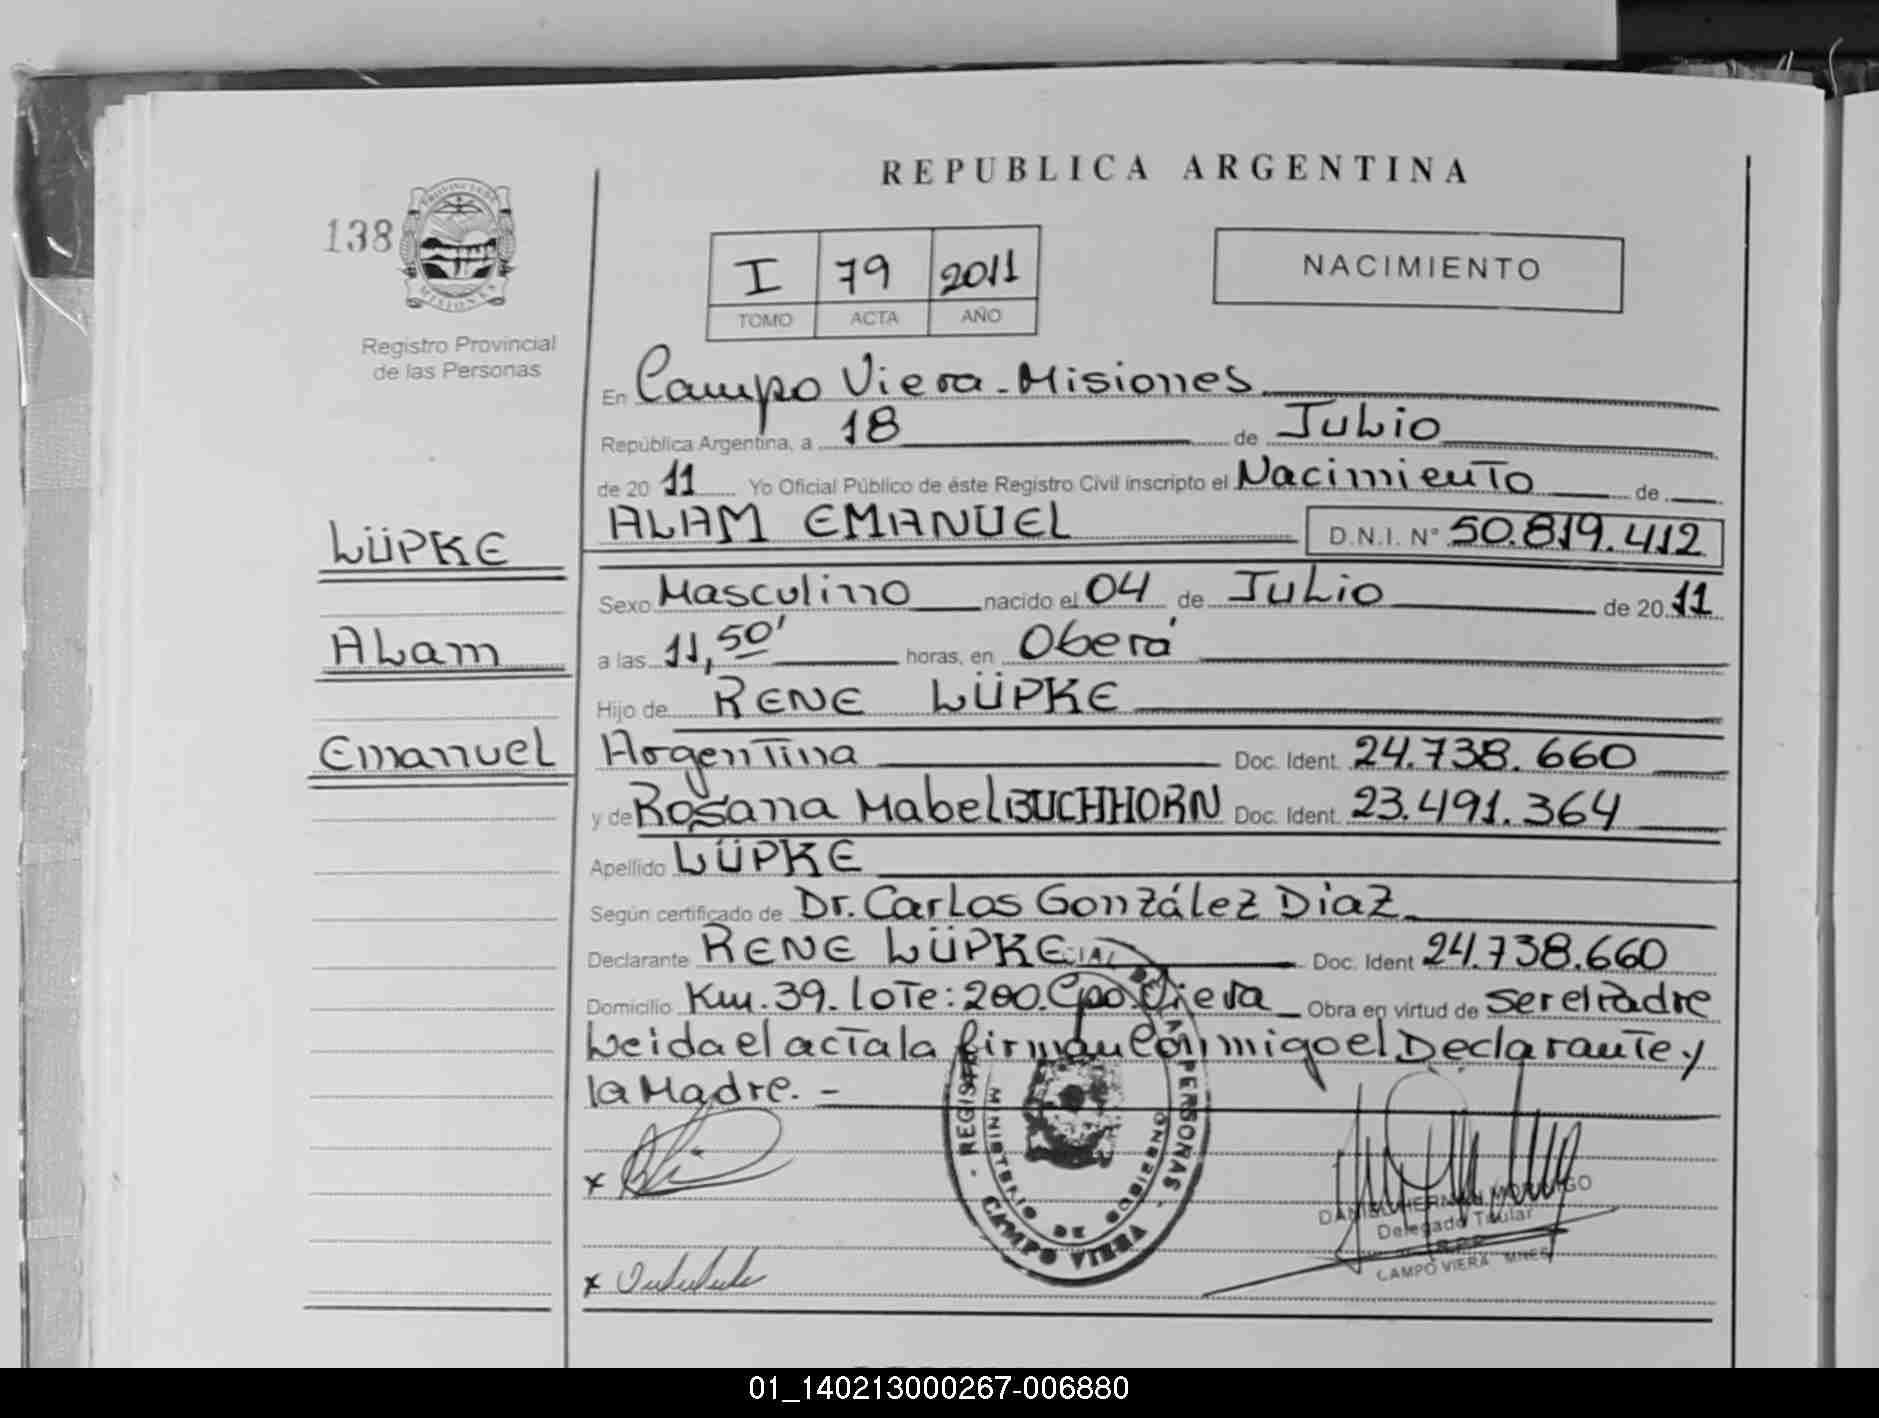 REPUBLICA ARGENTINA
138
PROVINCIA DE
MISIONES
Registro Provincial
de las Personas
I 79 2011
TOMO ACTA AÑO
NACIMIENTO
En Campo Viera - Misiones
República Argentina, a 18 de Julio
de 2011 Yo Oficial Público de éste Registro Civil inscripto el Nacimiento de
ALAM EMANUEL D.N.I. N° 50.819.412
LÜPKE
Sexo Masculino nacido el 04 de Julio de 2011
ALam
a las 11,50' horas, en Oberá
Hijo de RENE LÜPKE
Emanuel
Argentina Doc. Ident. 24.738.660
y de Rosana Mabel BUCHHORN Doc. Ident. 23.491.364
Apellido LÜPKE
Según certificado de Dr. Carlos González Diaz
Declarante RENE LÜPKE Doc. Ident 24.738.660
Domicilio Km. 39. Lote: 200. Cpo. Viera Obra en virtud de ser el Padre
Leida el acta la firman Conmigo el Declarante y
la Madre. -
x
x
- REGISTRO DE LAS PERSONAS -
MINISTERIO DE GOBIERNO
CAMPO VIERA
DANIEL HERNAN MORINIGO
Delegado Titular
CAMPO VIERA MNES
01_140213000267-006880